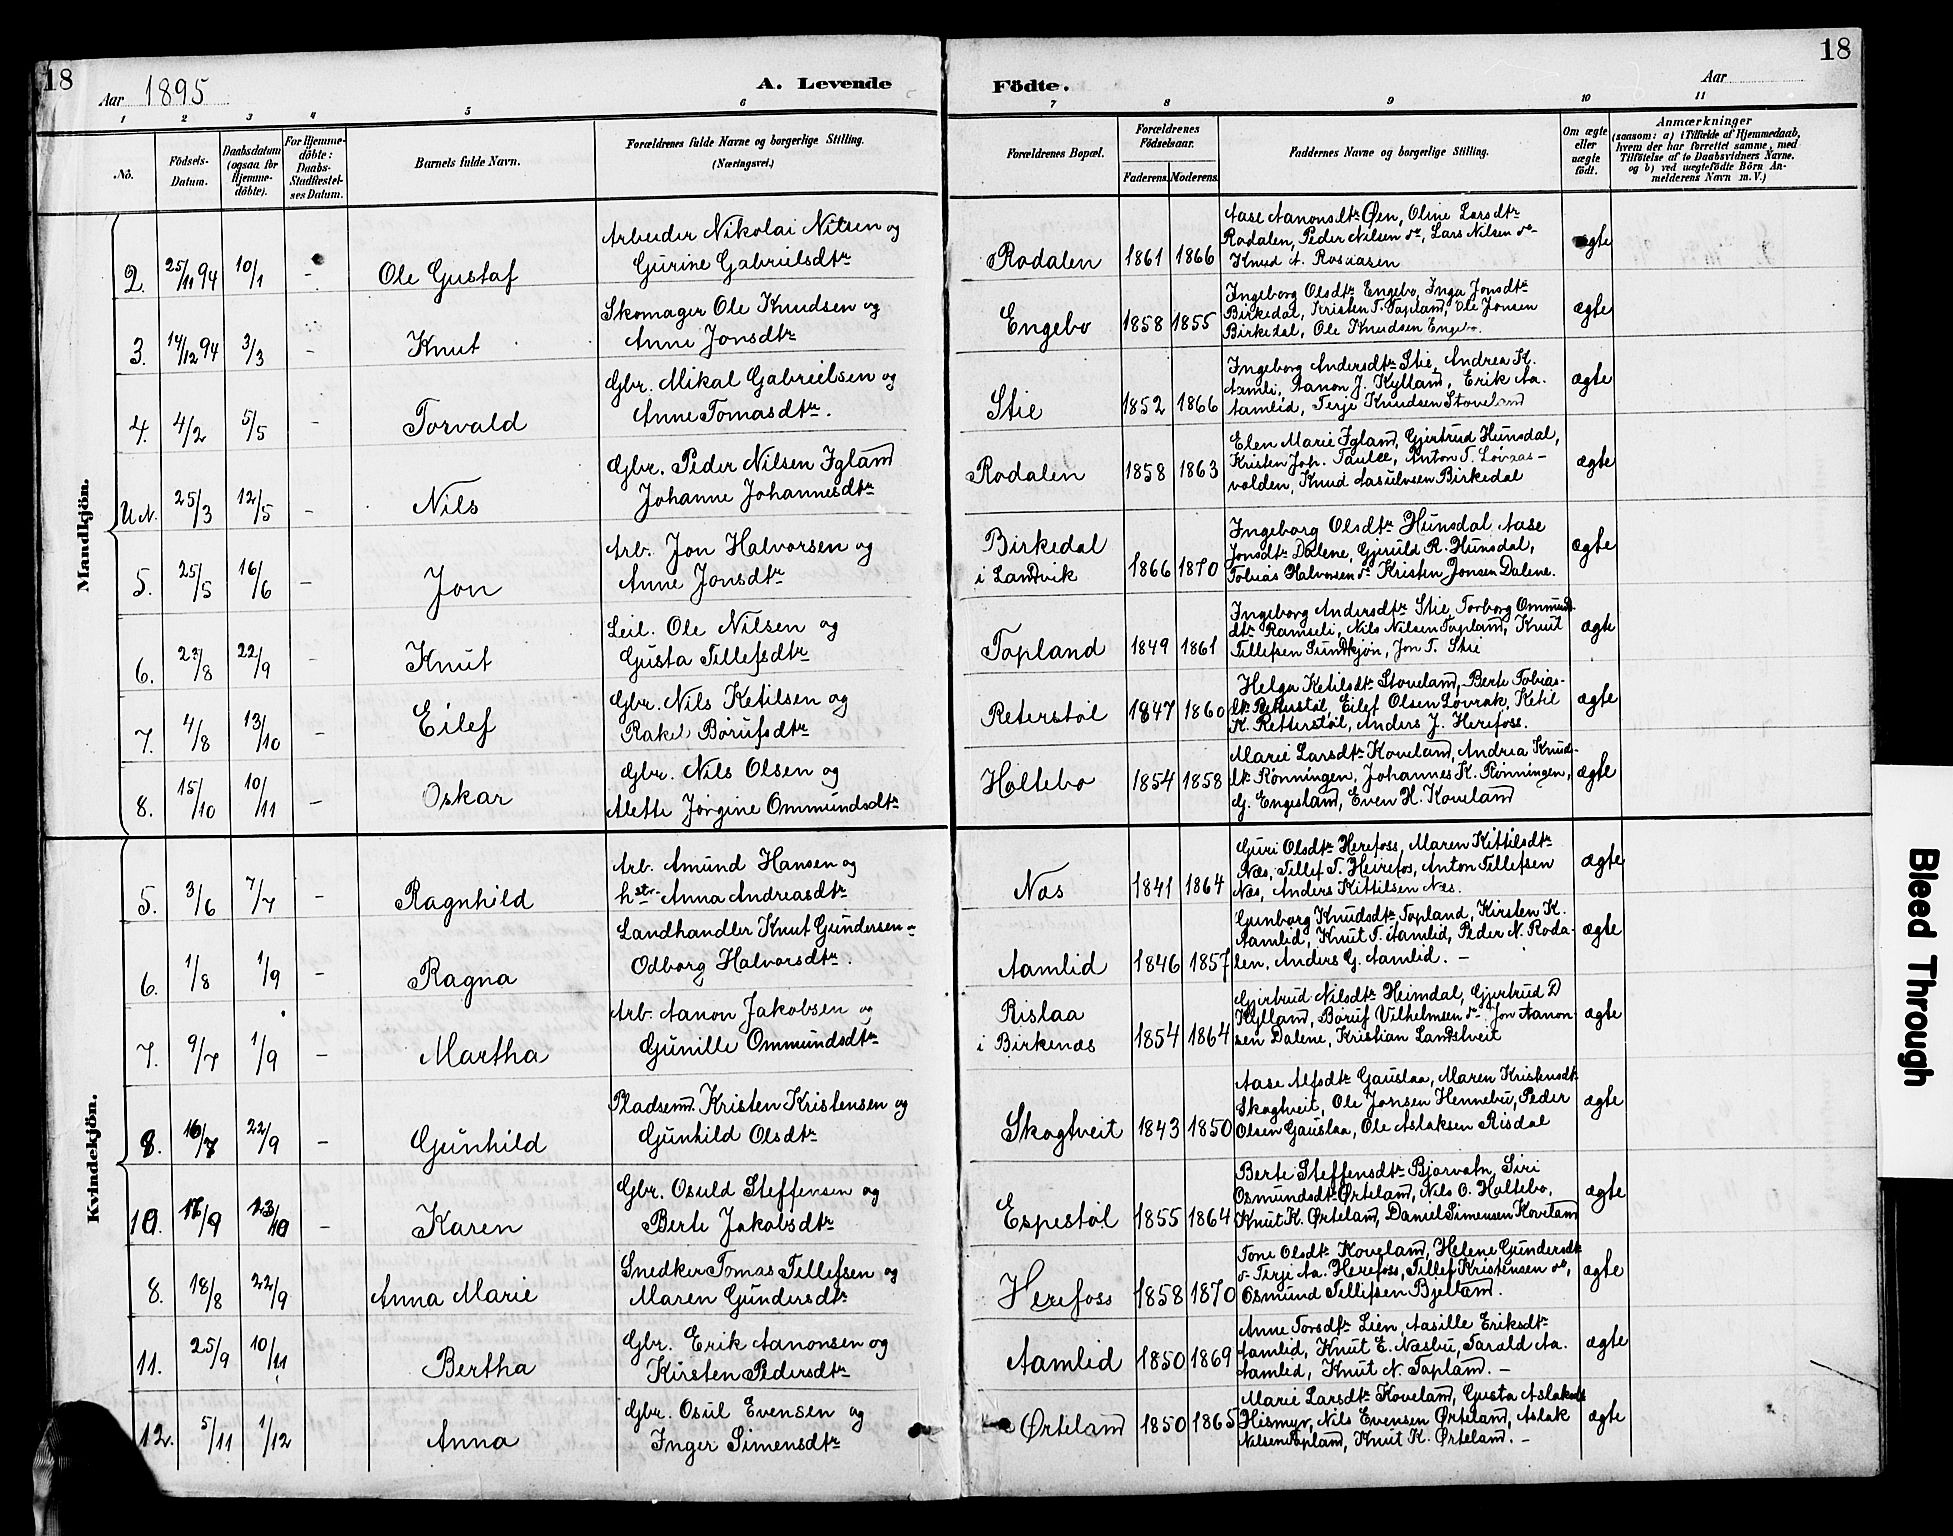 18
18
Aar 1895
A. Levende
Födte.
Aar
1 2 3 4 5 6 7 8 9 10 11
No.
Födsels-Datum.
Daabsdatum (ogsaa for Hjemme-döbte).
For Hjemme-döbte: Daabs-Stadfæstel-ses Datum.
Barnets fulde Navn.
Forældrenes fulde Navne og borgerlige Stilling. (Næringsvei.)
Forældrenes Bopæl.
Forældrenes Födselsaar.
Faderens. Moderens.
Faddernes Navne og borgerlige Stilling.
Om ægte eller uægte födt.
Anmærkninger
(saasom: a) i Tilfælde af Hjemmedaab, hvem der har forrettet samme, med Tilföielse af to Daabsvidners Navne, og b) ved uægtefödte Börn An-melderens Navn m. V.)
Mandkjön.
2. 25/11 94 10/1 - Ole Gustaf
Arbeider Nikolai Nilsen og
Gurine Gabrielsdtr
Rodalen 1861 1866
Aase Aanonsdtr Øen, Oline Larsdtr
Rodalen, Peder Nilsen do, Lars Nilsen do
Knud A. Rosaasen
ægte
3. 14/12 94 3/3 - Knut
Skomager Ole Knudsen og
Anne Jonsdtr
Engebo 1858 1855
Ingeborg Olsdtr Engebo, Inga Jonsdtr
Birkedal, Kristen T. Topland, Ole Jonsen
Birkedal, Ole Knudsen Engebo.
ægte
4. 4/2 5/5 - Torvald
Gbr. Mikal Gabrielsen og
Anne Tomasdtr.
Stie 1852 1866
Ingeborg Andersdtr Stie, Andrea K.
Aamli, Aanon J. Kylland, Erik Aa.
Aamlid, Terje Knudsen Stoveland
ægte
U.N. 25/3 12/5 - Nils
Gbr. Peder Nilsen Igland
Johanne Johannesdtr
Rodalen 1858 1863
Elen Marie Igland, Gjertrud Hunsdal,
Kristen Joh. Taulee, Anton T. Lovaas-
volden, Knud Aasulvsen Birkedal
ægte
5. 25/5 16/6 - Jon
Arb. Jon Halvorsen og
Anne Jonsdtr
Birkedal
i Landvik 1866 1870
Ingeborg Olsdtr Hunsdal, Aase
Jonsdtr Dalene, Gjeruld R. Hunsdal,
Tobias Halvorsen do Kristen Jonsen Dalene.
ægte
6. 23/8 22/9 - Knut
Leil. Ole Nilsen og
Gusta Tellefsdtr
Topland 1849 1861
Ingeborg Andersdtr Stie, Torborg Ommund-
dtr Ramseli, Nils Nilsen Topland, Knut
Tellefsen Sundtjön, Jon T. Stie
ægte
7. 4/8 13/10 - Eilef
Gbr. Nils Ketilsen og
Rakel Börufsdtr
Reterstøl 1847 1860
Helga Ketilsdtr Stoveland, Berte Tobias-
dtr Reterstøl, Eilef Olsen Lovrak, Ketil
K. Retterstøl, Anders J. Herefoss.
ægte
8. 15/10 10/11 - Oskar
Gbr. Nils Olsen og
Alette Jörgine Ommundsdtr
Holtebo 1854 1858
Marie Larsdtr Koveland, Andrea Knud-
dtr Rönningen, Johannes K. Rönningen,
G. Engesland, Even H. Koveland
ægte
Kvindekjön.
5. 3/6 7/7 - Ragnhild
Arb. Amund Hansen og
hstr. Anna Andreasdtr
Næs 1841 1864
Guri Olsdtr Herefoss, Maren Kittilsdtr
Næs, Tellef T. Heirefos, Anton Tellefsen
Næs, Anders Kittilsen Næs.
ægte
6. 1/8 1/9 Ragna
Landhandler Knut Gundersen -
Odborg Halvorsdtr.
Aamlid 1846 1857
Gunborg Knudsdtr Topland, Kirsten K.
Aamlid, Knut T. Aamlid, Peder N. Roda-
len, Anders G. Aamlid. -
ægte
7. 9/7 1/9 - Martha
Arb. Aanon Jakobsen og
Gunille Ommundsdtr
Rislaa
i Birkenæs 1854 1864
Gjertrud Nilsdtr Heimdal, Gjertrud D
Kylland, Boruf Vilhelmsen do Jon Aanon-
sen Dalene, Kristian Landstveit
ægte
8. 16/7 22/9 - Gunhild
Pladsemd. Kristen Kristensen og
Gunhild Olsdtr
Skogtveit 1843 1850
Aase Alfsdtr Gauslaa, Maren Kristensdtr
Skogtveit, Ole Jonsen Hennebu, Peder
Olsen Gauslaa, Ole Aslaksen Risdal
ægte
10. 17/9 13/10 - Karen
Gbr. Osuld Steffensen og
Berte Jakobsdtr
Espestøl 1855 1864
Berte Steffensdtr Bjorvatn, Siri
Osmundsdtr Ørteland, Nils O. Holtebo,
Knut K. Ørteland, Daniel Simensen Koveland
ægte
8. 18/8 22/9 Anna Marie
Snedker Tomas Tellefsen og
Maren Gundersdtr
Herefoss 1858 1870
Tone Olsdtr Koveland, Helene Gundersdtr
do Terje Aa. Herefoss, Tellef Kristensen do,
Osmund Tellefsen Bjelland.
ægte
11. 25/9 10/11 Bertha
Gbr. Erik Aanonsen og
Kirsten Pedersdtr
Aamlid 1850 1869
Anne Torsdtr Lien, Aasille Eriksdtr
Aamlid, Knut E. Næsbu, Tarald Aa.
Aamlid, Knut N. Topland. -
ægte
12. 5/11 1/12 Anna
Gbr. Osul Evensen og
Inger Simensdtr
Ørteland 1850 1865
Marie Larsdtr Koveland, Gusta Aslaksdtr
Hismyr, Nils Evensen Ørteland, Aslak
Nilsen Topland, Knut K. Ørteland. -
ægte
Bleed Through